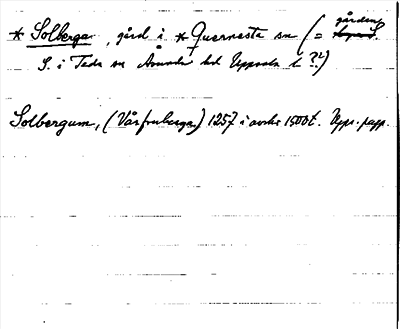 * Solberga, gård i * Quernesta sn (= gården
S. i Teda sn Åsunda hd Uppsala l ?!)
Solbergum, (Vårfruberga) 1257 i avskr 1500t. Upps. papp.